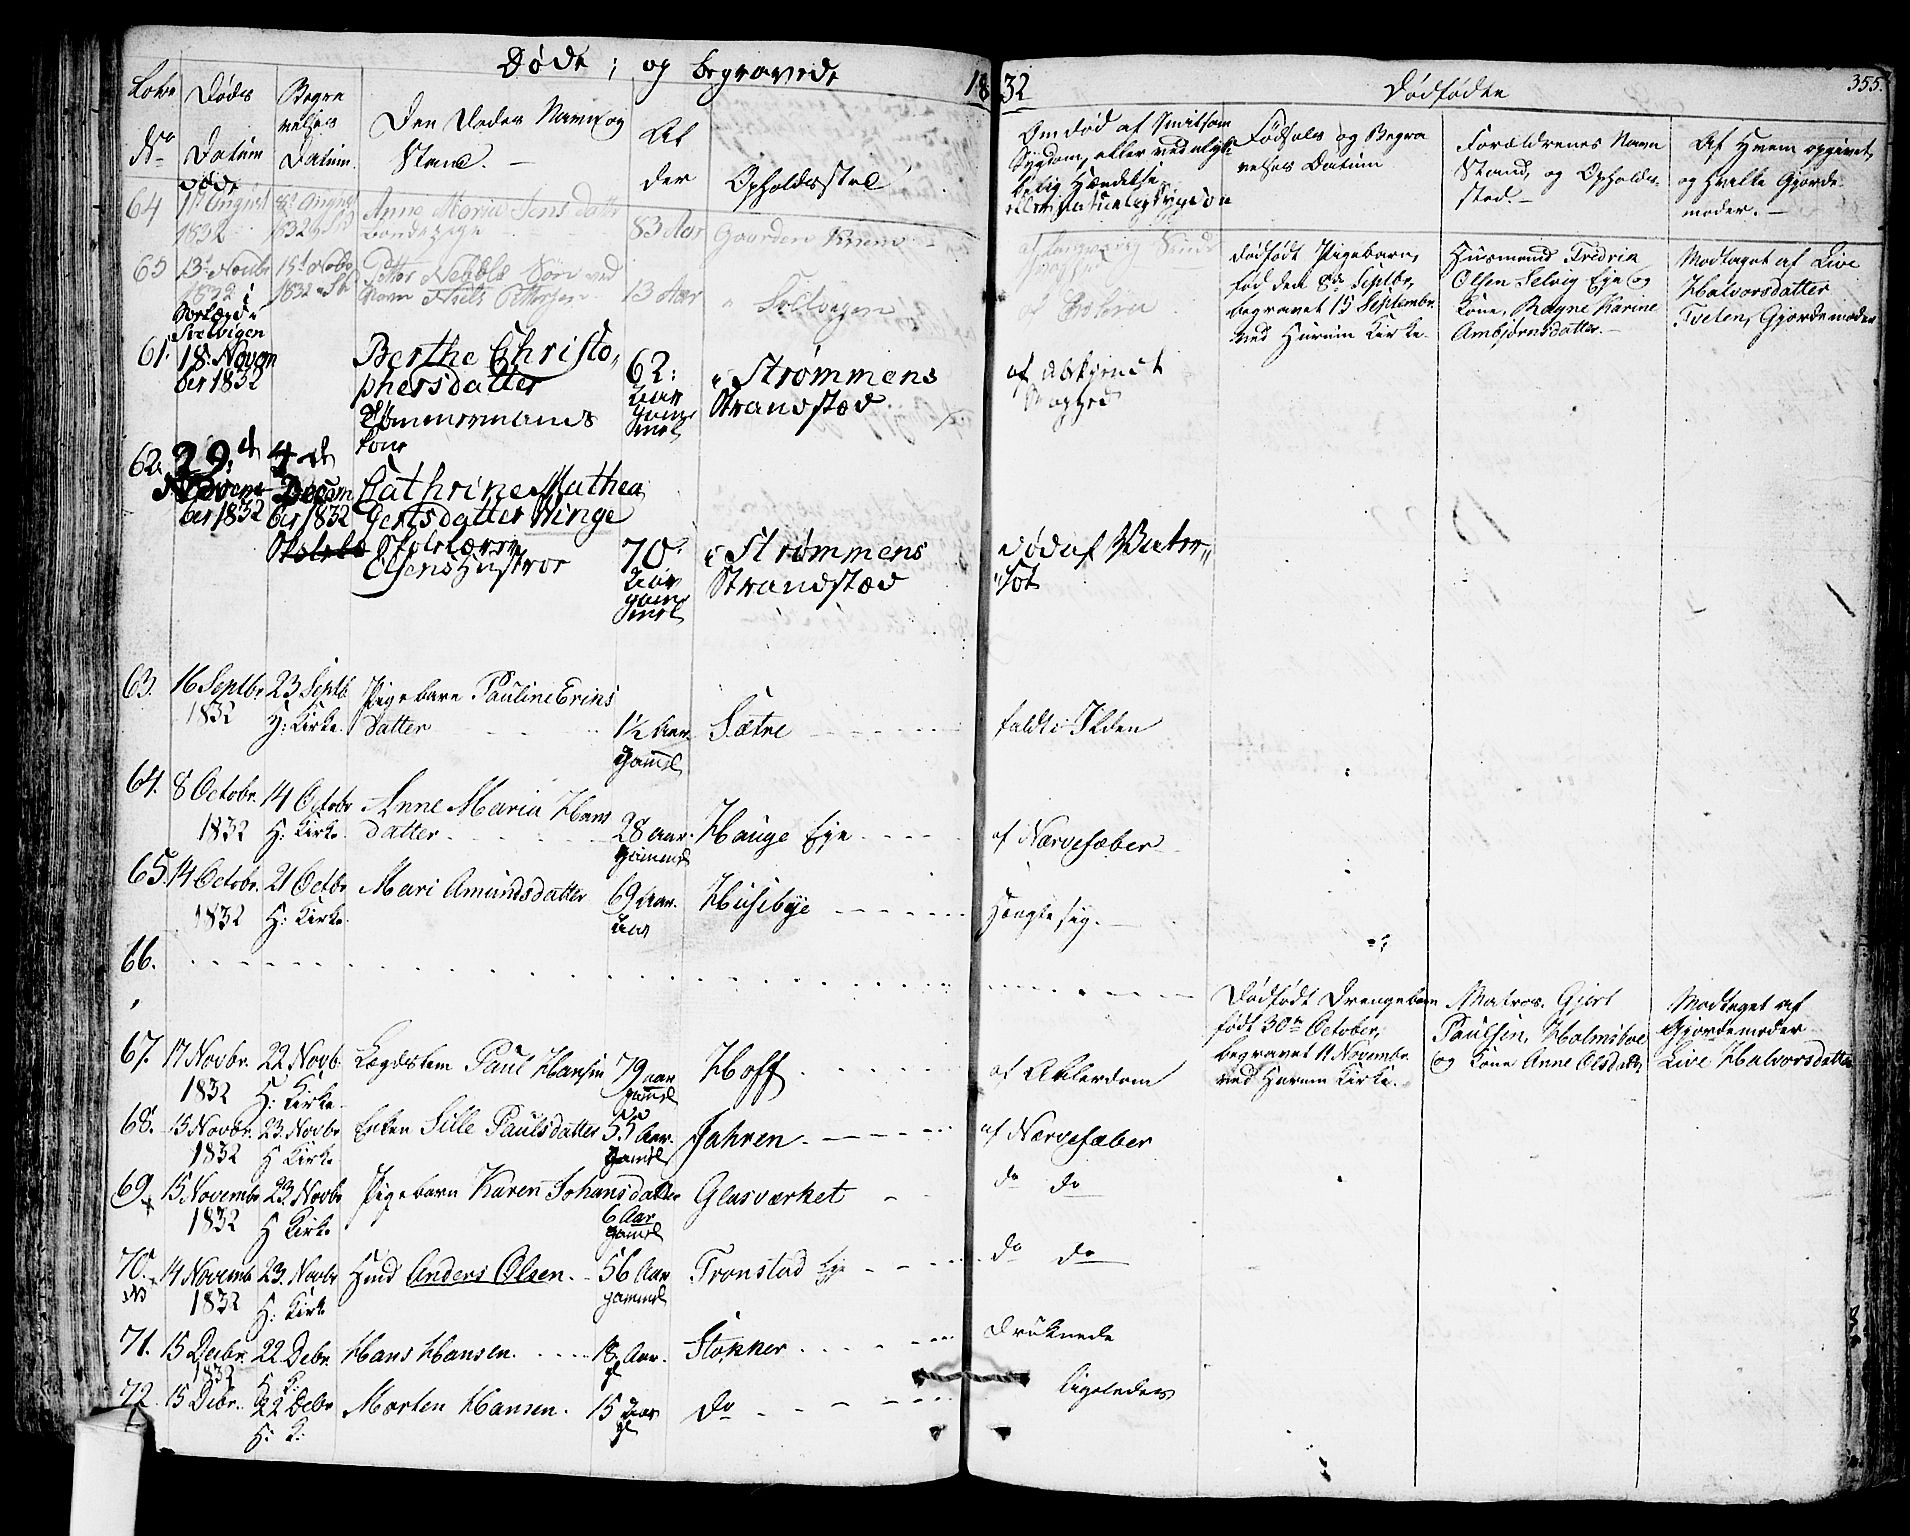 Døde; og begravede
1832
Dødfødte
355.
Løbe No
Døds Datum
Begravelses Datum.
Den Dødes Navn og Stand. —
Alder
Opholdssted
Om død af smitsom Sygdom, eller ved ulykkelig Hændelse
Fødsels og Begravelses Datum
Forældrenes Navn Stand, og Opholdssted. —
Af Hvem opgivet, og hvilke Gjordemoder. —
64 1st August 1832 8de August 1832 Anne Maria Jens Datter 83 Aar Gaarden
65 13de Novbr 1832 15de Novbr 1832 Petter Søn ved Navn Niels Pettersen 13 Aar Soelvigen
Dødfødt Pigebarn, fød den 8de Septbr, begravet 15 Septembr. ved Hurum Kirke.
Husmand Fredrik Olsen Selvig Eje og Kone, Ragne Karine Ambjørnsdatter. —
Modtaget af Live Halvorsdatter Tveten, Gjordemoder
61. 18. November 1832 Berthe Christophersdatter Tømmermands kone 62: Aar Gammel Strømmens Strandstæd af Svaghed
62. 29de November 1832 4de December 1832 Cathrine Mathea Gertsdatter Ringe Skolelærer Olsens Hustroe 70. Aar gammel Strømmens Strandstæd død af Vatersot
63. 16 Septbr 1832 23 Septb. H: Kirke. Pigebarn Pauline Erins Datter 1½ Aar. Gammel Sætre faldt i Ilden
64. 8 Octobr. 1832 14 Octobr H: Kirke. Anne Maria Hans datter 28 Aar. Gammel Hauge Eje af Nærvefæber
65. 14 Octobr. 1832 21 Octbr. H: Kirke. Mari Amundsdatter 69 Aar. Husebye Hængte sig.
66.
Dødfødt Drengebarn født 30te October, begravet 11 Novembr. ved Hurum Kirke.
Matros. Gjert Paulsen, Holmsboe og Kone Anne Olsdatt.
Modtaget af Gjordemoder Live Halvorsdatter
67. 17 Novbr. 1832 22 Novb. H: Kirke. Lægdslem Paul Hansen 79 aar gammel Hoff af Alderdom
68. 15 Novbr. 1832 23. Novbr H Kirke Enken Sille Paulsdatter 55 Aar. Gammel Jahren. af Nærvefæber
69 15 Novembr 1832 23. Novbr H Kirke Pigebarn Karen Johansdatter 6 Aar gammel Glasværket do do
70. 14 Novemb 1832 23. Novbr H: Kirk Hmd Anders Olsen. 56 Aar gammel Tronstad Eje do do
71. 15 Decbr. 1832 22 Debr. H K. Hans Hansen. 18 Aar. gl Stokker druknede
72. 15 Debr. 22 Debr H: K: Morten Hansen. 15 Aar gl do ligeledes